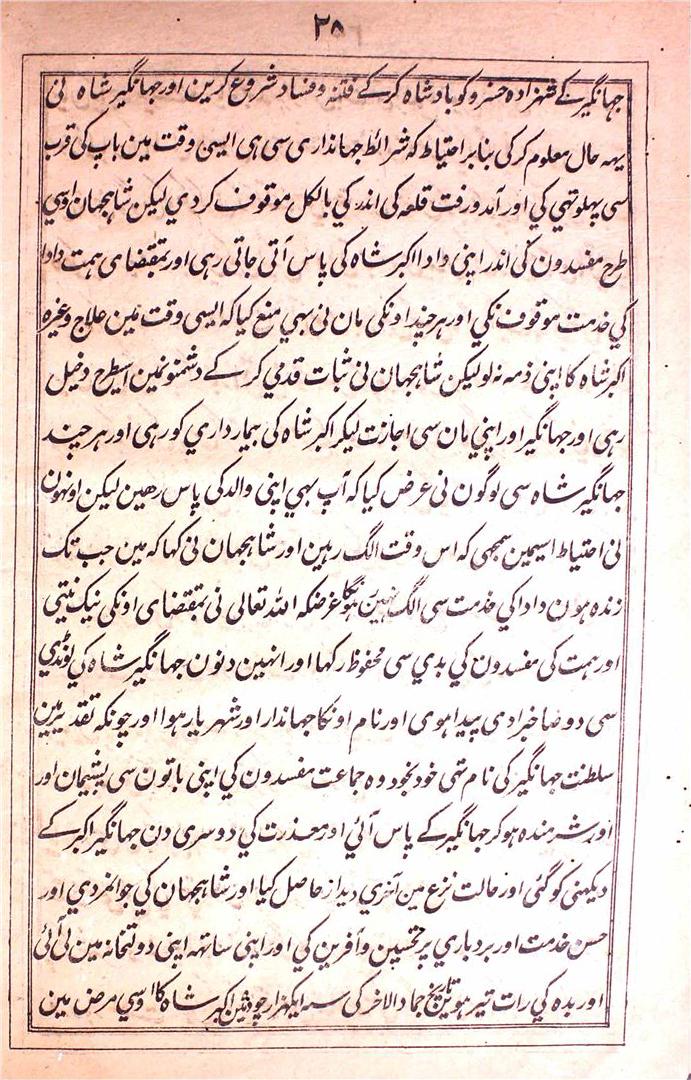 ٣٨
جہانگیرکے شہزادہ خسرو کو بادشاہ کرکے فتنہ و فساد شروع کرین اور جہانگیر شاہ نی
یہہ حال معلوم کرکی بنابر احتیاط کہ شرائط جہانداری سی ہی ایسی وقت مین باپ کی قرب
سی پہلوتہی کی اور آمدورفت قلعہ کی اندر کی بالکل موقوف کردی لیکن شاہجہان اوسی
طرح مفسدون کی اندر اپنی دادا اکبر شاہ کی پاس آتی جاتی رہی اور بمقتضای ہمت دادا
کی خدمت موقوف نکی اور ہرچند اونکی مان نی بہی منع کیا کہ ایسی وقت مین علاج وغیرہ
اکبر شاہ کا اپنی ذمہ نہ لو لیکن شاہجہان نی ثبات قدمی کرکے دشمنونمین اسیطرح دخیل
رہی اور جہانگیر اور اپنی مان سی اجازت لیکر اکبر شاہ کی بیمارداری کو رہی اور ہرچند
جہانگیر شاہ سی لوگون نی عرض کیا کہ آپ بہی اپنی والد کی پاس رہین لیکن اونہون
نی احتیاط اسیمین سمجہی کہ اس وقت الگ رہین اور شاہجہان نی کہا کہ مین جب تک
زندہ ہون دادا کی خدمت سی الگ نہین ہونگا غرضکہ اللہ تعالی نی بمقتضای اونکی نیک نیتی
اور ہمت کی مفسدون کی بدی سی محفوظ رکہا اور انہین دنون جہانگیر شاہ کی لونڈی
سی دو صاخبرادی پیدا ہوی اور نام اونکا جہاندار اور شہریار ہوا اور چونکہ تقدیر مین
سلطنت جہانگیر کی نام تہی خودبخود وہ جماعت مفسدون کی اپنی باتون سی پشیمان اور
اور شرمندہ ہوکر جہانگیر کے پاس آئی اور معذرت کی دوسری دن جہانگیر اکبر کے
دیکہنی کو گئی اور حالت نزع مین آخری دیدار حاصل کیا اور شاہجہان کی جوانمردی اور
حسن خدمت اور بردباری پر تحسین و آفرین کی اور اپنی ساتہہ اپنی دولتخانہ مین لی آئی
اور بدہ کی رات تیرہوین تاریخ جماد الاخر کی سنہ ایکہزار چودہ مین اکبر شاہ کا اوسی مرض مین